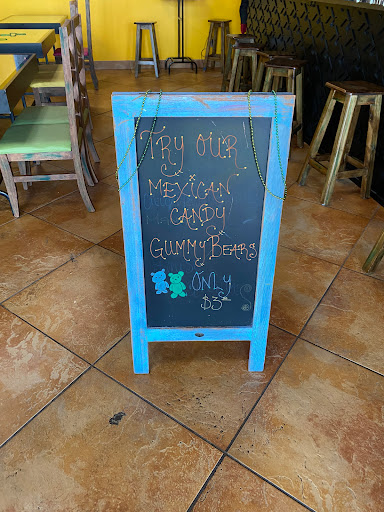 TRY OUR
MEXICAN
CANDY
GUMMYBEARS
ONLY
$3